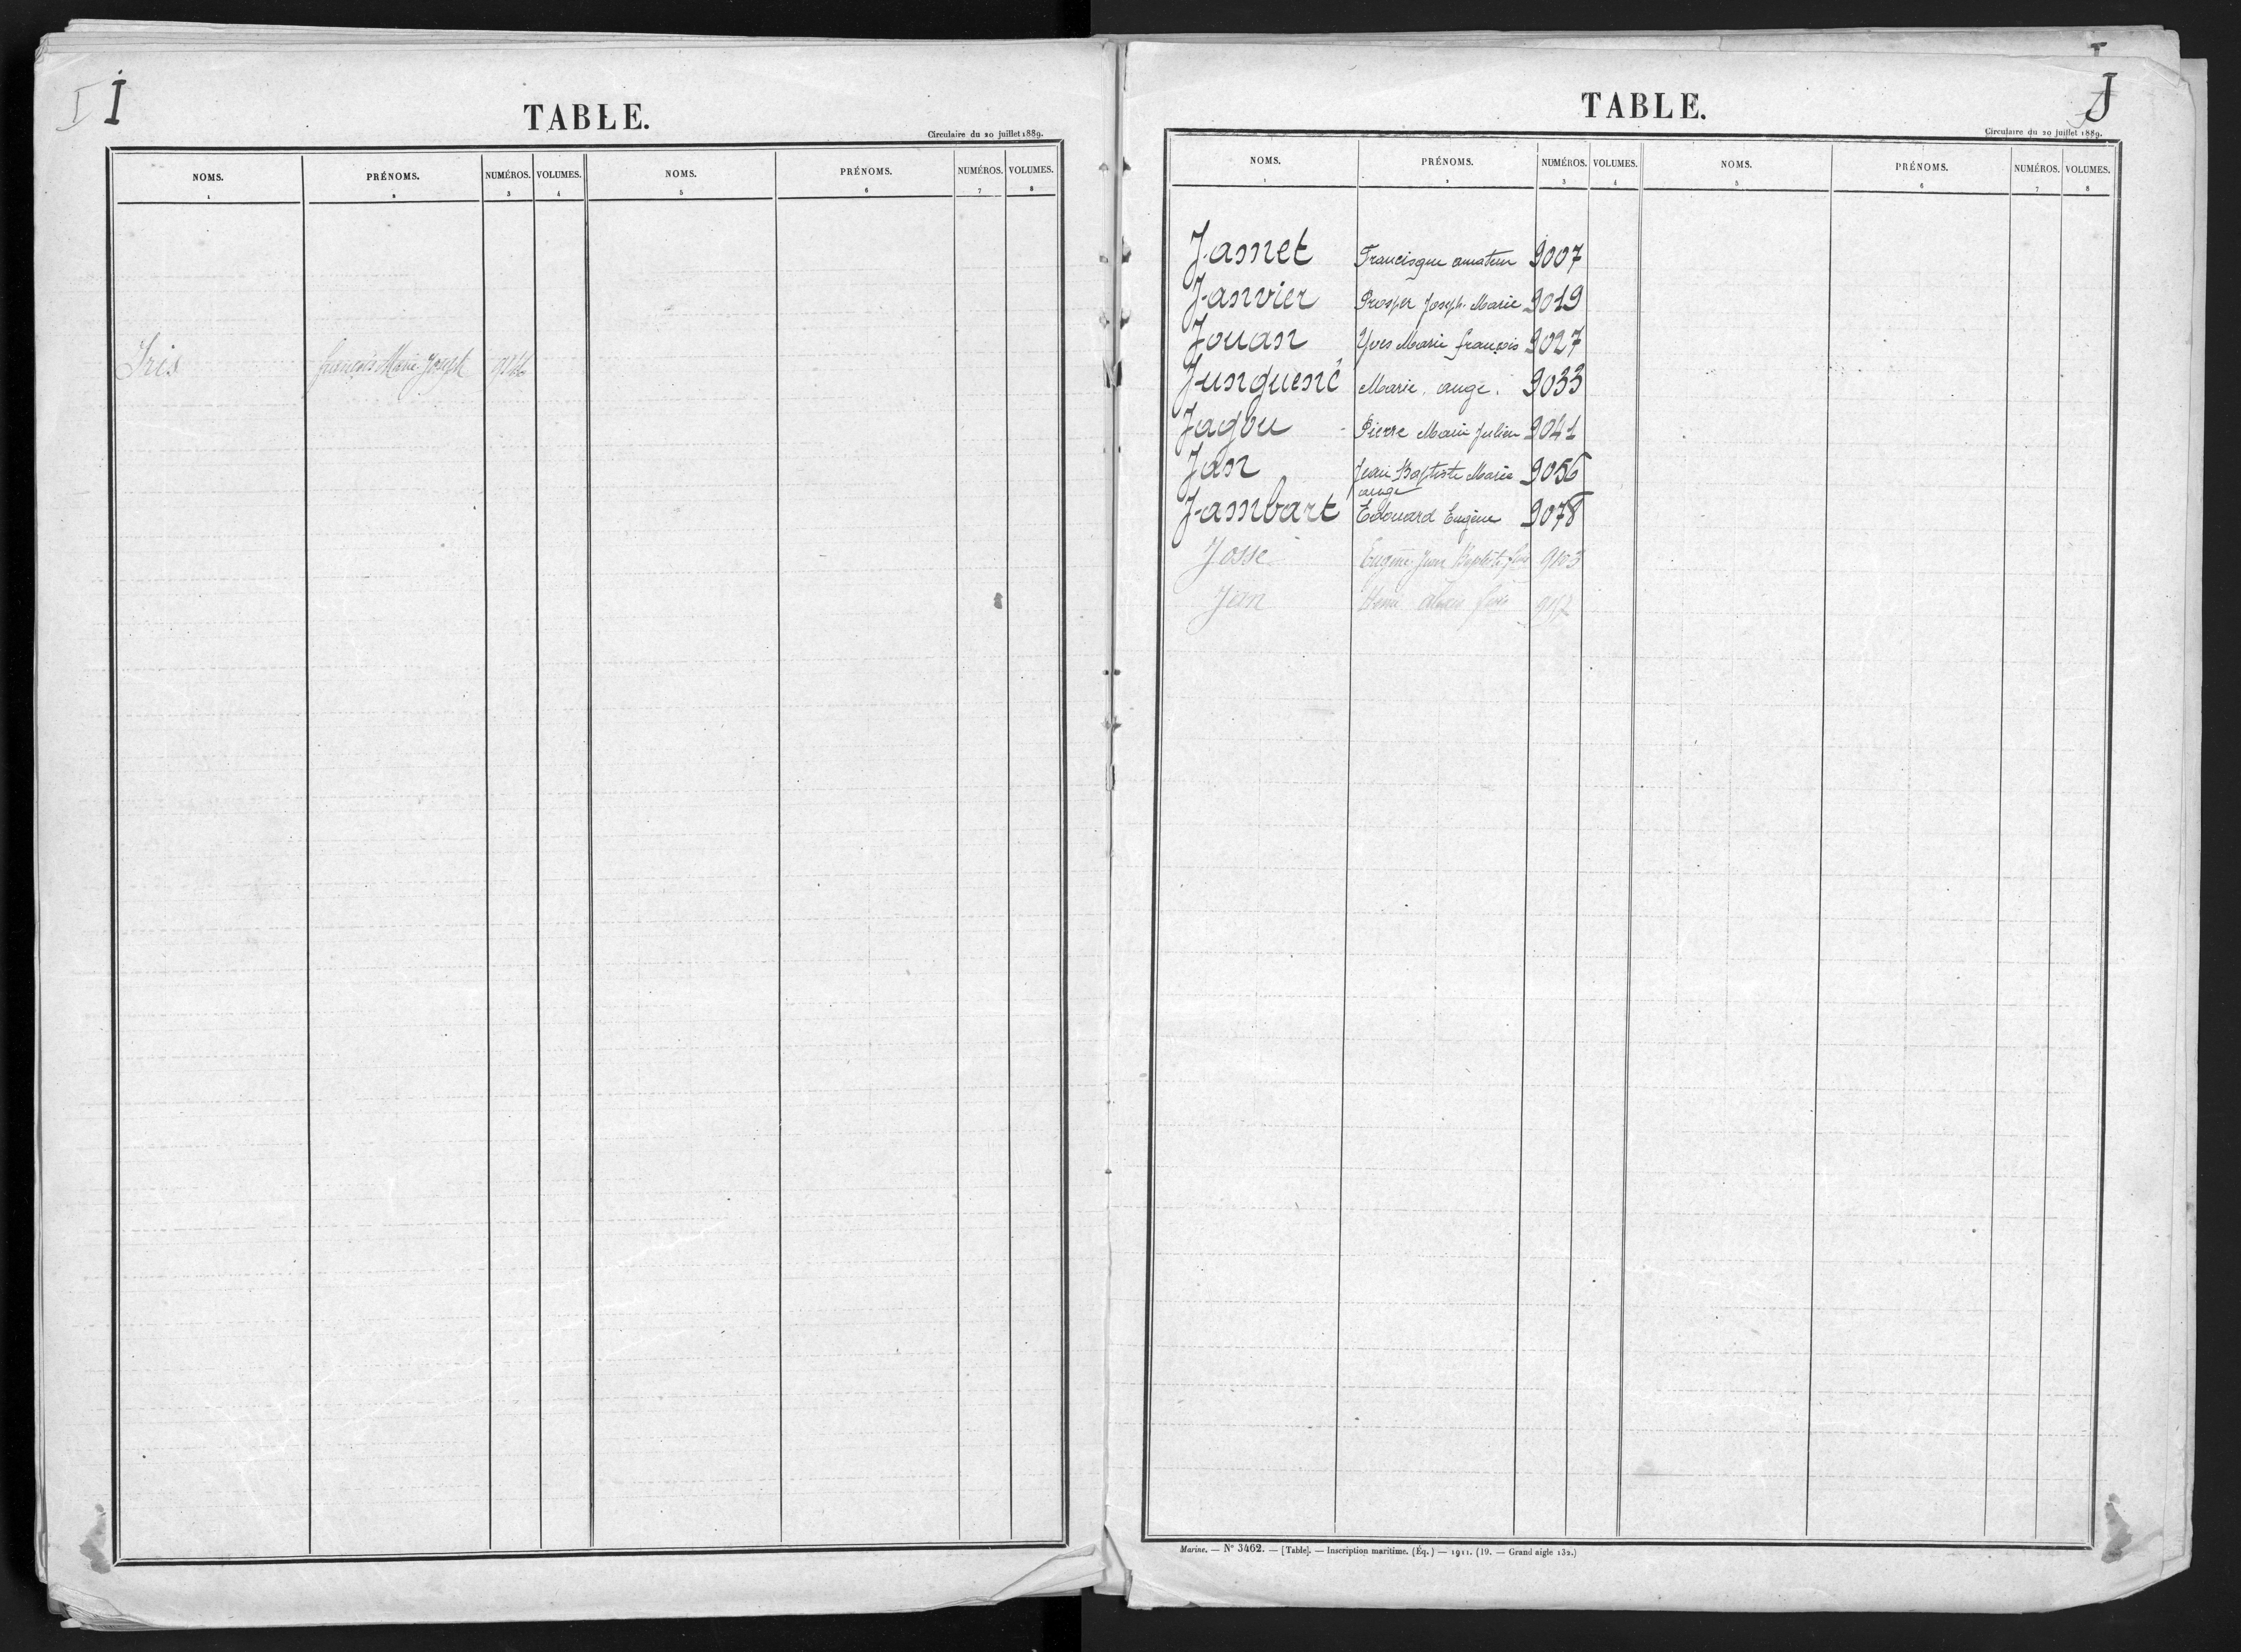 I I
TABLE.
Circulaire du 20 juillet 1889.
NOMS. PRÉNOMS. NUMÉROS. VOLUMES. NOMS. PRÉNOMS. NUMÉROS. VOLUMES.
1 2 3 4 5 6 7 8
Iris françois Marie Joseph
J
TABLE.
Circulaire du 20 juillet 1889.
NOMS. PRÉNOMS. NUMÉROS. VOLUMES. NOMS. PRÉNOMS. NUMÉROS. VOLUMES.
1 2 3 4 5 6 7 8
Jamet Francisque amateur 9007
Janvier Prosper Joseph Marie 9019
Jouan Yves Marie françois 9027
Junguené Marie ange. 9033
Jagou Pierre Marie Julien 9041
Jan Jean Baptiste Marie 9056
ange
Jambart Edouard Eugène 9078
Josse Eugène Jean Baptiste 9103
Jan Henri
Marine. — N° 3462. — [Table]. — Inscription maritime. (Éq.) — 1911. (19. — Grand aigle 132.)